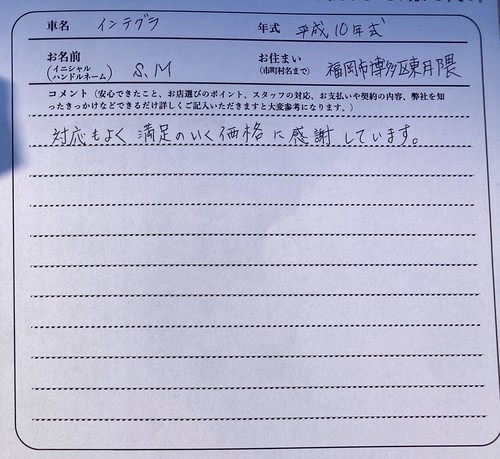 車名 インテグラ 年式 平成10年式
お名前 (イニシャル ハンドルネーム) S.M お住まい (市町村名まで) 福岡市博多区東月隈
コメント (安心できたこと、お店選びのポイント、スタッフの対応、お支払いや契約の内容、弊社を知
ったきっかけなどできるだけ詳しくご記入いただきますと大変参考になります。)
対応もよく満足のいく価格に感謝しています。